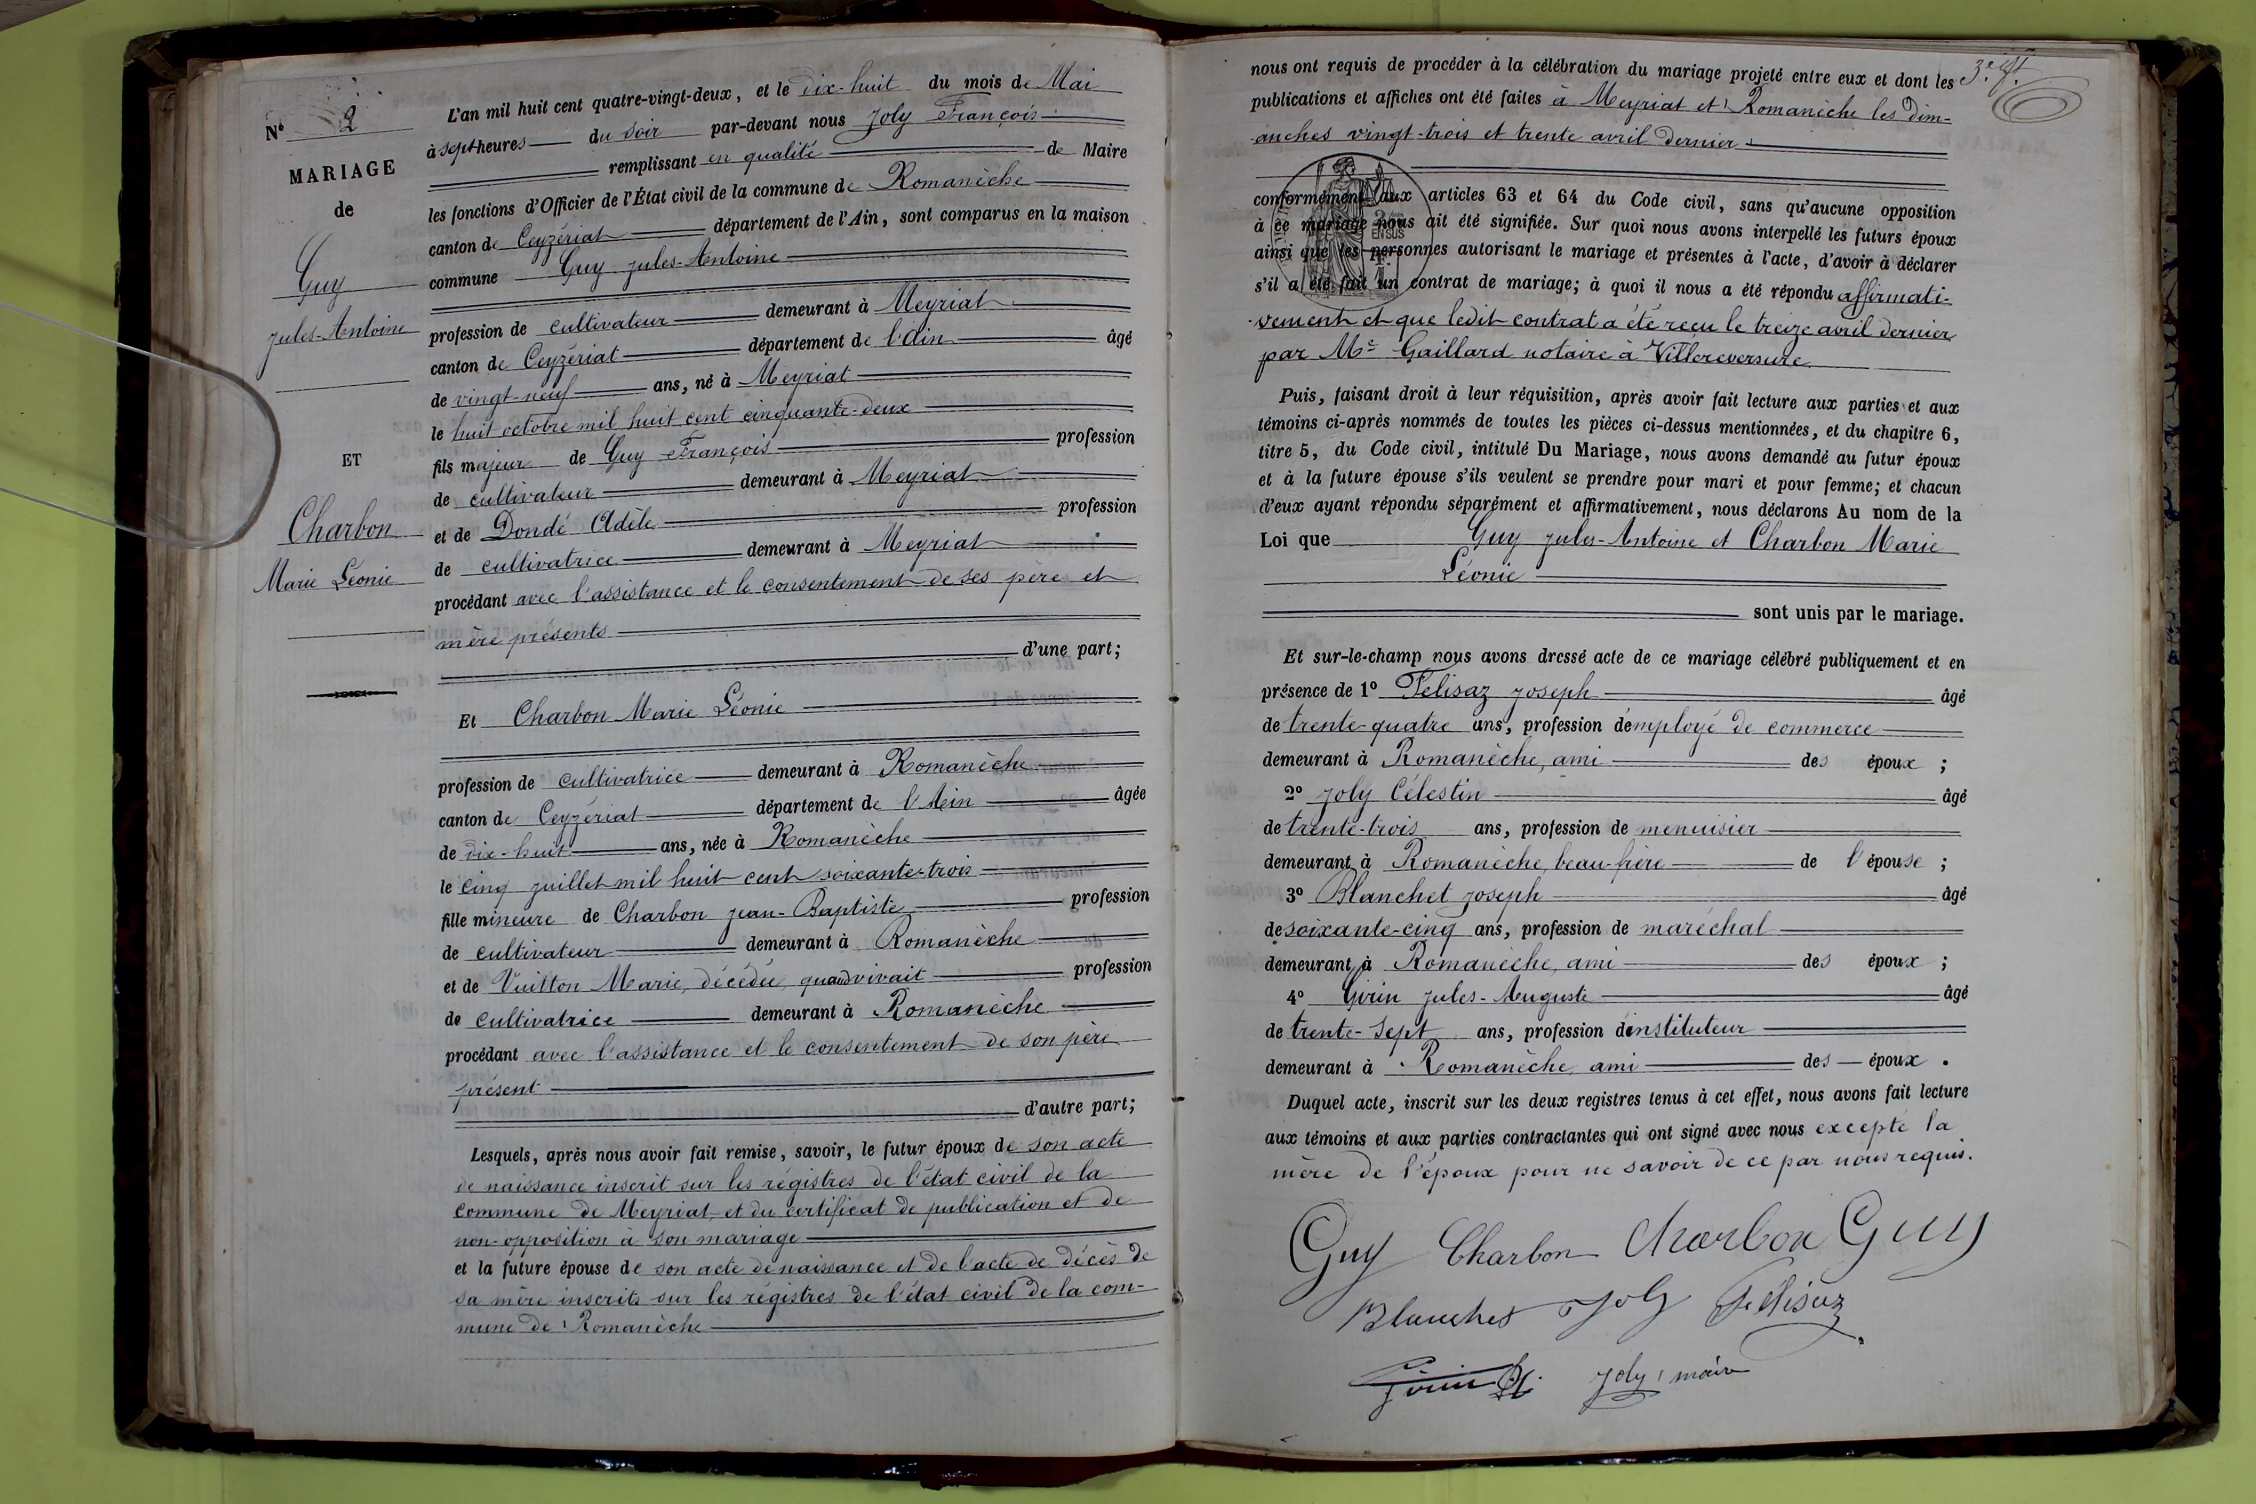 Nº 2
MARIAGE
de
Guy
Jules-Antoine
ET
Charbon
Marie Léonie
L'an mil huit cent quatre-vingt-deux, et le dix-huit du mois de Mai
à sept heures du soir par-devant nous Joly François
remplissant en qualité de Maire
les fonctions d'Officier de l'État civil de la commune de Romanèche
canton de Ceyzériat département de l'Ain, sont comparus en la maison
commune Guy Jules-Antoine
profession de cultivateur demeurant à Meyriat
canton de Ceyzériat département de l'Ain âgé
de vingt-neuf ans, né à Meyriat
le huit octobre mil huit cent cinquante-deux
fils majeur de Guy François profession
de cultivateur demeurant à Meyriat
et de Dondé Adèle profession
de cultivatrice demeurant à Meyriat
procédant avec l'assistance et le consentement de ses père et
mère présents
d'une part;
Et Charbon Marie Léonie
profession de cultivatrice demeurant à Romanèche
canton de Ceyzériat département de l'Ain âgée
de dix-huit ans, née à Romanèche
le cinq juillet mil huit cent soixante-trois
fille mineure de Charbon Jean-Baptiste profession
de cultivateur demeurant à Romanèche
et de Vuitton Marie, décédée, quand vivait profession
de cultivatrice demeurant à Romanèche
procédant avec l'assistance et le consentement de son père
présent
d'autre part;
Lesquels, après nous avoir fait remise, savoir, le futur époux de son acte
de naissance inscrit sur les régistres de l'état civil de la
commune de Meyriat, et du certificat de publication et de
non-opposition à son mariage
et la future épouse de son acte de naissance et de l'acte de décès de
sa mère inscrits sur les régistres de l'état civil de la com-
mune de Romanèche
nous ont requis de procéder à la célébration du mariage projeté entre eux et dont les
publications et affiches ont été faites à Meyriat et Romanèche les dim-
anches vingt-trois et trente avril dernier
conformément aux articles 63 et 64 du Code civil, sans qu'aucune opposition
à ce mariage nous ait été signifiée. Sur quoi nous avons interpellé les futurs époux
ainsi que les personnes autorisant le mariage et présentes à l'acte, d'avoir à déclarer
s'il a été fait un contrat de mariage; à quoi il nous a été répondu affirmati-
vement et que ledit contrat a été reçu le treize avril dernier
par Me Gaillard notaire à Villereversure
Puis, faisant droit à leur réquisition, après avoir fait lecture aux parties et aux
témoins ci-après nommés de toutes les pièces ci-dessus mentionnées, et du chapitre 6,
titre 5, du Code civil, intitulé Du Mariage, nous avons demandé au futur époux
et à la future épouse s'ils veulent se prendre pour mari et pour femme; et chacun
d'eux ayant répondu séparément et affirmativement, nous déclarons Au nom de la
Loi que Guy Jules-Antoine et Charbon Marie
Léonie
sont unis par le mariage.
Et sur-le-champ nous avons dressé acte de ce mariage célébré publiquement et en
présence de 1º Félisaz Joseph âgé
de trente-quatre ans, profession d'employé de commerce
demeurant à Romanèche, ami des époux ;
2º Joly Célestin âgé
de trente-trois ans, profession de menuisier
demeurant à Romanèche, beau-frère de l'épouse ;
3º Blanchet Joseph âgé
de soixante-cinq ans, profession de maréchal
demeurant à Romanèche, ami des époux ;
4º Girin Jules-Auguste âgé
de trente-sept ans, profession d'instituteur
demeurant à Romanèche, ami des époux.
Duquel acte, inscrit sur les deux registres tenus à cet effet, nous avons fait lecture
aux témoins et aux parties contractantes qui ont signé avec nous excepté la
mère de l'époux pour ne savoir de ce par nous requis.
Guy Charbon Charbon Guy
Blanchet Joly Félisaz
Girin Joly, maire